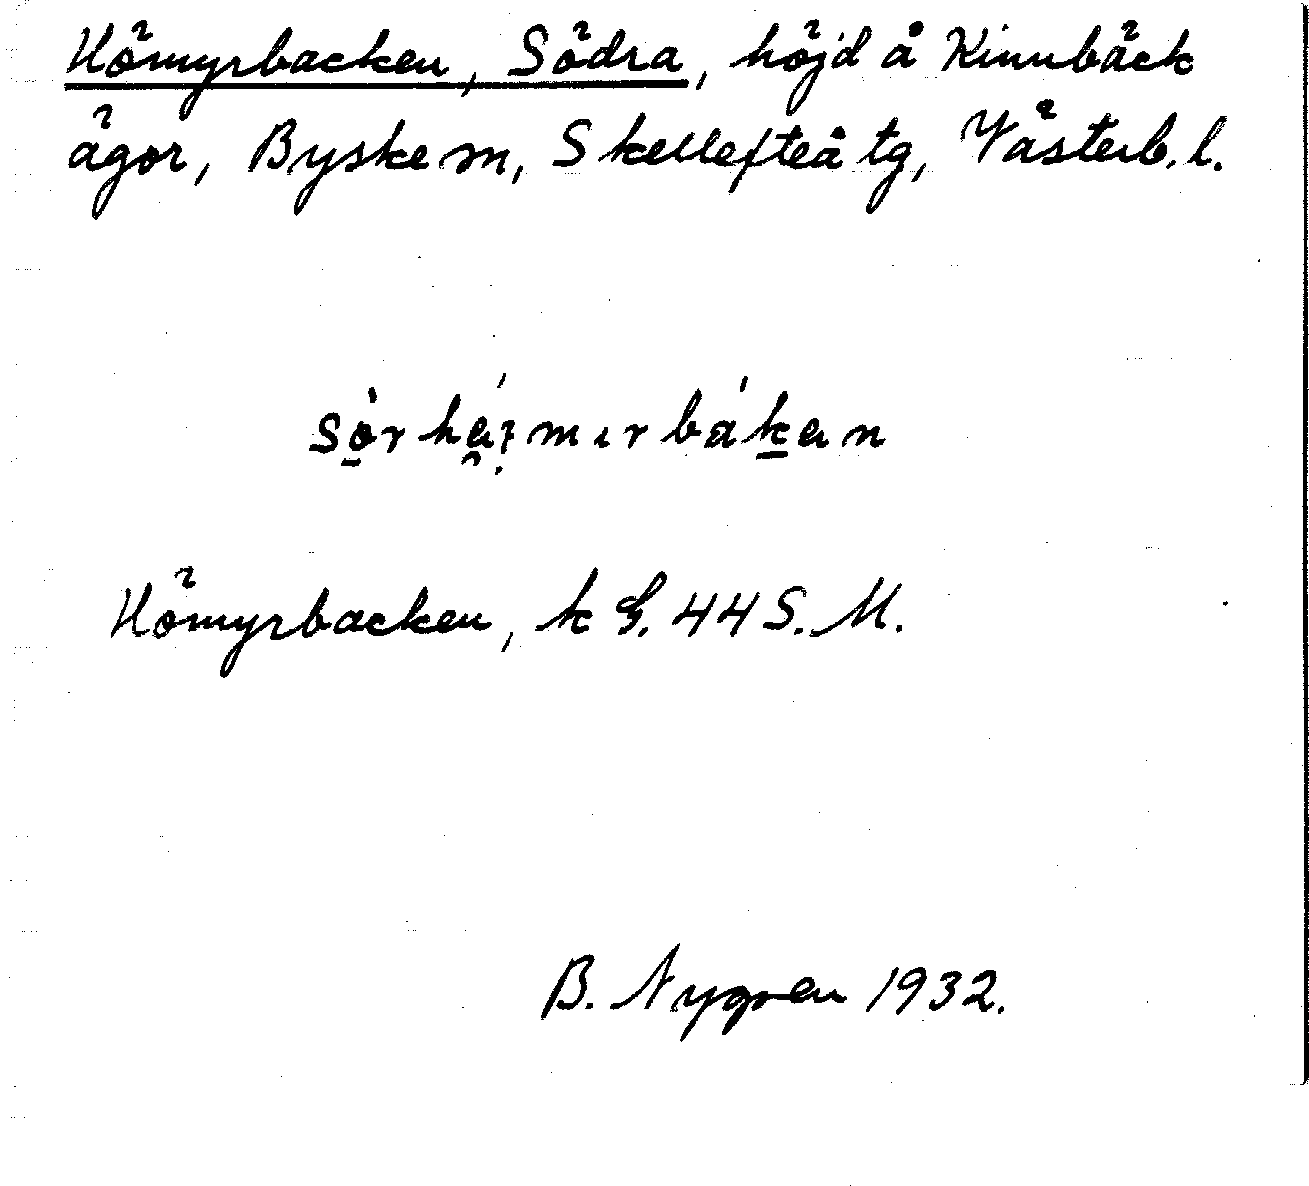 Hömyrbacken, Södra, höjd å Kinnbäck
ägor, Byske sn, Skellefteå tg, Västerb. l.
Hömyrbacken, k G. 44 S. M.
B. Nygren 1932.